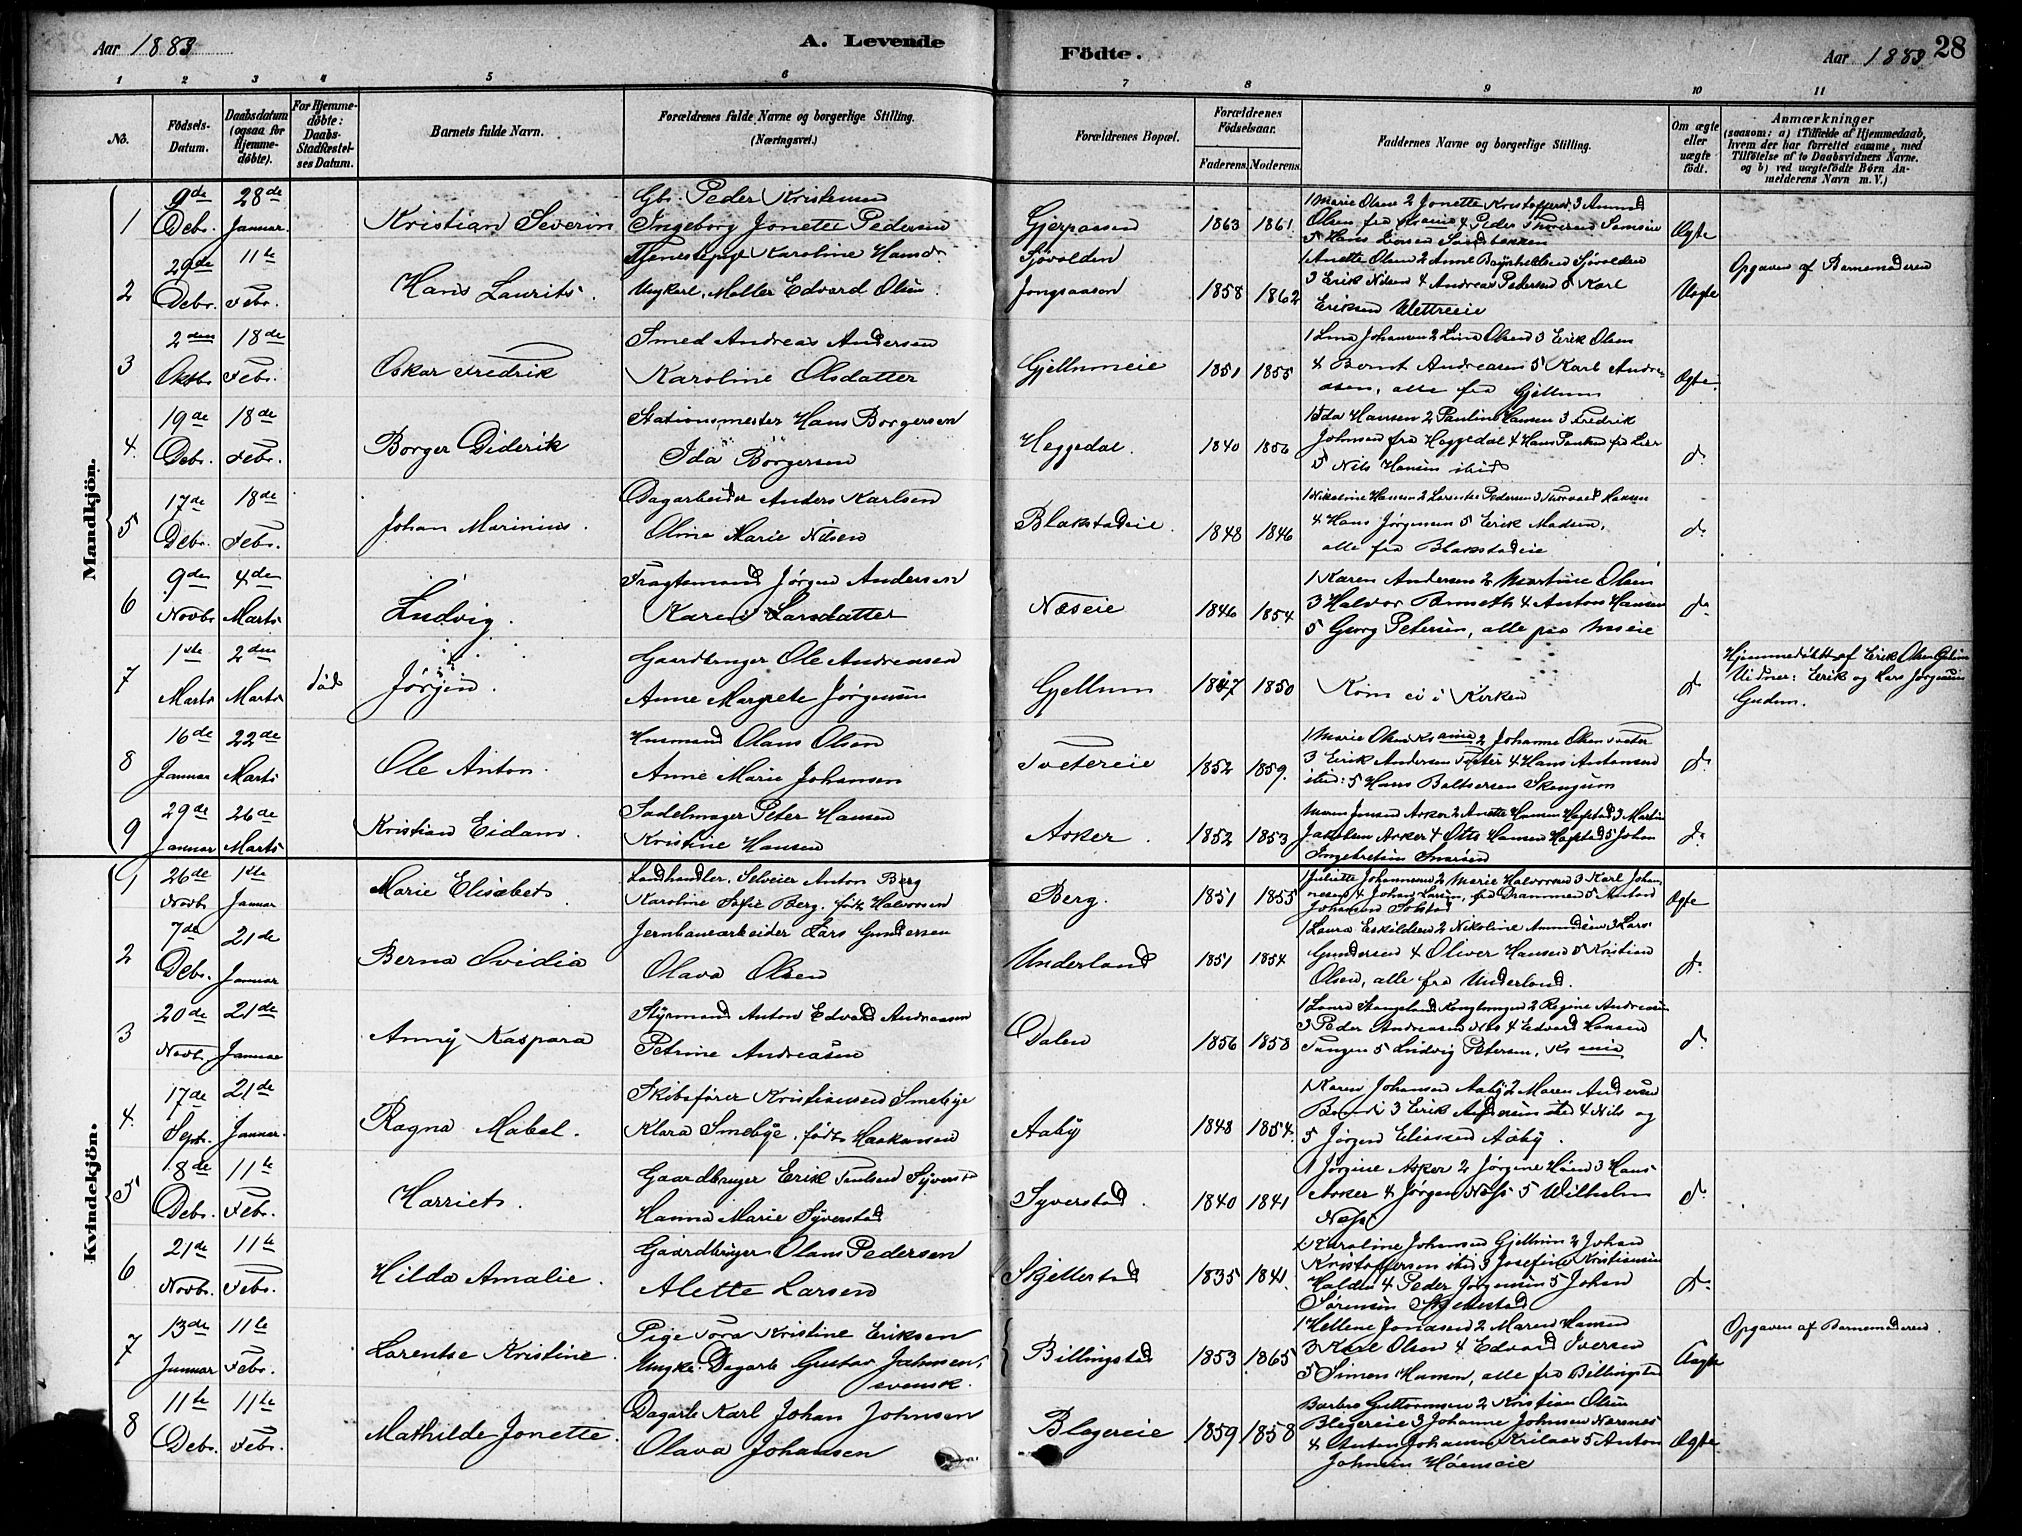 Aar 1883
A. Levende
Födte.
Aar 1883
28
1 2 3 4 5 6 7 8 9 10 11
No.
Födsels-Datum.
Daabsdatum (ogsaa for Hjemme-döbte).
For Hjemme-döbte: Daabs-Stadfæstelses Datum.
Barnets fulde Navn.
Forældrenes fulde Navne og borgerlige Stilling. (Næringsvei.)
Forældrenes Bopæl.
Forældrenes Födselsaar.
Faderens. Moderens.
Faddernes Navne og borgerlige Stilling.
Om ægte eller uægte födt.
Anmærkninger
(saasom: a) i Tilfælde af Hjemmedaab, hvem der har forrettet samme, med Tilföielse af to Daabsvidners Navne, og b) ved uægtefödte Börn Anmelderens Navn m. V.)
Mandkjön.
1 9de Debr. 28de Januar. Kristian Severin
Gbr. Peder Kristensen
Ingeborg Jonette Pedersen
Gjerpaasen 1863 1861 Ægte
2 29de Debr. 11te Febr. Hans Laurits.
Tjenestepige Karoline Hansd.
Ungkarl, Møller Edvard Olsen
Sjøvolden
Jongsaasen 1858 1862
3 Erik Nilsen 4 Andreas Pedersen 5 Karl
Eriksen
Uægte
Opgaven af Barnemoderen
3 2den Oktbr. 18de Febr. Oskar Fredrik
Smed Andreas Andersen
Karoline Olsdatter
Gjellumeie 1851 1855
1 Lina Johansen 2 Lina Olsen 3 Erik Olsen
4 Bernt Andreasen 5 Karl Andre-
asen, alle fra Gjellum
Ægte.
4 19de Debr. 18de Febr. Borger Diderik
Stationsmester Hans Borgersen
Ida Borgersen
Heggedal. 1840 1856
1 Ida Hansen 2 Pauline Hansen 3 Fredrik
Johnsen fra Heggedal 4 Hans Paulsen fra Lier
5 Nils Hansen ibid
do
5 17de Debr. 18de Febr. Johan Marinius.
Dagarbeider Anders Karlsen
Oline Marie Nilsen
Blakstadeie. 1848 1846
1 Nikoline Hansen 2 Lorentse Pedersen 3 Thorvald Hansen
4 Hans Jørgensen 5 Erik Madsen,
alle fra Blakstadeie
do
6 9de Novbr. 4de Marts Ludvig.
Fragtemand Jørgen Andersen
Karen Larsdatter
Næseie 1846 1854
1 Karen Andersen 2 Martine Olsen
3 Halvor 4 Anton Hansen
5 Georg Petersen, alle fra Næseie
do
7 1ste Marts 2den Marts død Jørgen.
Gaardbruger Ole Andreasen
Anne Margrete Jørgensen
Gjellum 1847 1850 Kom ei i Kirken do
Hjemmedøbt af Erik Olsen
Vidner: Erik og Lars Jørgensen
8 16de Januar 22de Marts Ole Anton.
Husmand Olaus Olsen
Anne Marie Johansen
Tvetereie 1852 1859.
1 Marie Olsen 2 Johanne Olsen Tveter
3 Erik Andersen Tveter 4 Hans Antonsen
ibid: 5 Hans Baltsersen Skaugum
do
9 29de Januar 26de Marts Kristian Eidam.
Sadelmager Peter Hansen
Kristine Hansen
Asker. 1852 1853
Maren Jensen Asker 2 Anette Hansen Hogstad 3 Martin
Jakobsen Asker 4 Otto Hansen Hogstad 5 Johan
Ingebretsen
do
Kvindekjön.
1 26de Novbr. 1ste Januar Marie Elisabet.
Landhandler, Selveier Anton Berg
Karoline Sofie Berg, født Halvorsen
Berg. 1851 1855
1 Juliette Johannesen 2 Marie Halvorsen 3 Karl Johan-
nesen 4 Johan Larsen, fra Drammen 5 Anton
Johansen Solstad
Ægte
2 7de Debr. 21de Januar Berna Ovidia
Jernbanearbeider Lars Gundersen
Olava Olsen
Underland 1851 1854
1 Laura Eskildsen 2 Nikoline Amundsen 3 Lars
Gundersen 4 Oliver Hansen 5 Kristian
Olsen, alle fra Underland.
do
3 20de Novbr. 21de Januar Anny Kaspara
Styrmand Anton Edvard Andreasen
Petrine Andreasen
Dalen 1856 1858
1 Laura 2 Regine Andreasen
3 Peder Andreasen 4 Edvard Hansen
Tangen 5 Ludvig Petersen, Krania
do
4 17de Septr. 21de Januar. Ragna Mabel.
Skibsfører Kristiansen Smebye
Klara Smebye, født Haakonsen
Aaby 1848 1854.
1 Karen Johansen Aaby 2 Maren Andersen
3 Erik Andersen ibid 4 Nils og
5 Jørgen Eliassen Aaby.
5 8de Debr. 11te Febr. Harriet.
Gaardbruger Erik Paulsen Syverst
Hanna Marie Syverstad
Syverstad. 1840 1841
1 Jørgine Asker 2 Jørgine Høen 3 Hans
Asker 4 Jørgen Næss 5 Wilhelm
Næss
do
6 21de Novbr. 11te Febr. Hilda Amalie.
Gaardbruger Olaus Pedersen
Alette Larsen
Skjellestad 1835 1841.
1 Karoline Johansen Gjellum 2 Johan
Kristoffersen ibid 3 Josefine Kristiansen
Halden 4 Peder Jørgensen 5 Johan
Sørensen Skjellestad
do
7 13de Januar 11te Febr. Lorentse Kristine.
Pige Tora Kristine Eriksen
Ungk. Dagarb. Gustav Johnsen,
svensk.
Billingstad 1853 1865
1 Helene Jonasen 2 Maren Hansen
3 Karl Olsen 4 Edvard Iversen
5 Simon Hansen, alle fra Billingstad
Uægte
Opgaven af Barnemoderen
8 11te Debr. 11te Febr. Mathilde Jonette.
Dagarb. Karl Johan Johnsen
Olava Johansen
Blegereie 1859 1858
Barbro Guttormsen 2 Kristian Olsen
Blegereie 3 Johanne Johnsen Nærnes
4 Anton Johansen 5 Anton
Johnsen
Ægte